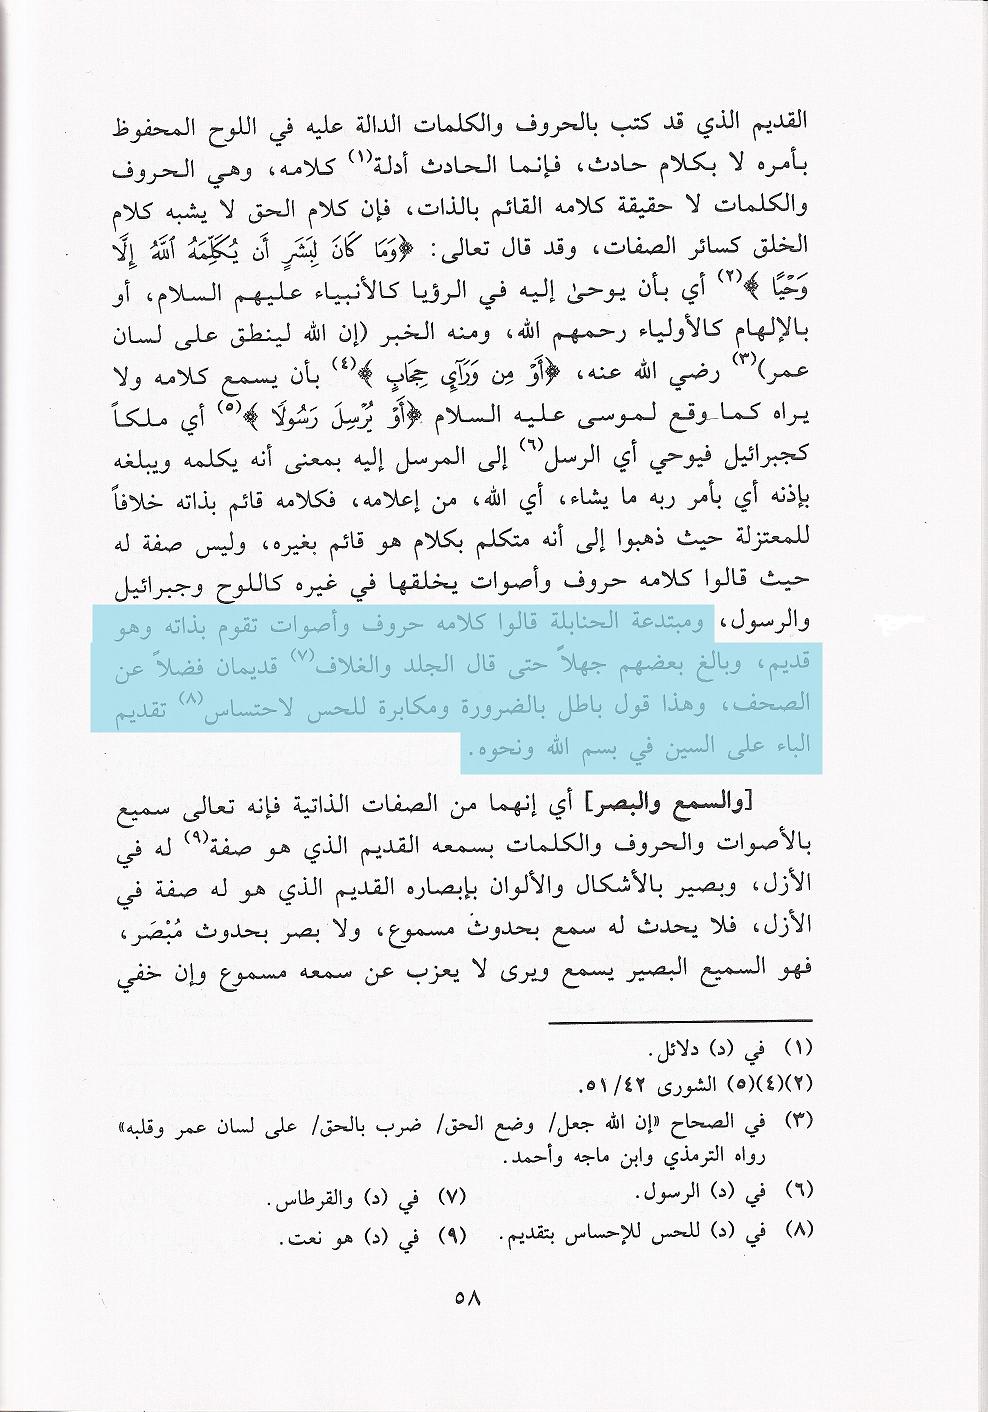 القديم الذي قد كتب بالحروف والكلمات الدالة عليه في اللوح المحفوظ
بأمره لا بكلام حادث، فإنما الحادث أدلة(١) كلامه، وهي الحروف
والكلمات لا حقيقة كلامه القائم بالذات، فإن كلام الحق لا يشبه كلام
الخلق كسائر الصفات، وقد قال تعالى: ﴿وَمَا كَانَ لِبَشَرٍ أَن يُكَلِّمَهُ ٱللَّهُ إِلَّا
وَحْيًا﴾(٢) أي بأن يوحىٰ إليه في الرؤيا كالأنبياء عليهم السلام، أو
بالإلهام كالأولياء رحمهم الله، ومنه الخبر (إن الله لينطق على لسان
عمر)(٣) رضي الله عنه، ﴿أَوْ مِن وَرَآيِٕ حِجَابٍ﴾(٤) بأن يسمع كلامه ولا
يراه كما وقع لموسى عليه السلام ﴿أَوْ يُرْسِلَ رَسُولًا﴾(٥) أي ملكاً
كجبرائيل فيوحي أي الرسل(٦) إلى المرسل إليه بمعنى أنه يكلمه ويبلغه
بإذنه أي بأمر ربه ما يشاء، أي الله، من إعلامه، فكلامه قائم بذاته خلافاً
للمعتزلة حيث ذهبوا إلى أنه متكلم بكلام هو قائم بغيره، وليس صفة له
حيث قالوا كلامه حروف وأصوات يخلقها في غيره كاللوح وجبرائيل
والرسول، ومبتدعة الحنابلة قالوا كلامه حروف وأصوات تقوم بذاته وهو
قديم، وبالغ بعضهم جهلاً حتى قال الجلد والغلاف(٧) قديمان فضلاً عن
الصحف، وهذا قول باطل بالضرورة ومكابرة للحس لاحتساس(٨) تقديم
الباء على السين في بسم الله ونحوه.
[والسمع والبصر] أي إنهما من الصفات الذاتية فإنه تعالى سميع
بالأصوات والحروف والكلمات بسمعه القديم الذي هو صفة(٩) له في
الأزل، وبصير بالأشكال والألوان بإبصاره القديم الذي هو له صفة في
الأزل، فلا يحدث له سمع بحدوث مسموع، ولا بصر بحدوث مُبْصَر،
فهو السميع البصير يسمع ويرى لا يعزب عن سمعه مسموع وإن خفي
(١) في (د) دلائل.
(٢)(٤)(٥) الشورى ٥١/٤٢.
(٣) في الصحاح «إن الله جعل/ وضع الحق/ ضرب بالحق/ على لسان عمر وقلبه»
رواه الترمذي وابن ماجه وأحمد.
(٦) في (د) الرسول. (٧) في (د) والقرطاس.
(٨) في (د) للحس للإحساس بتقديم. (٩) في (د) هو نعت.
٥٨